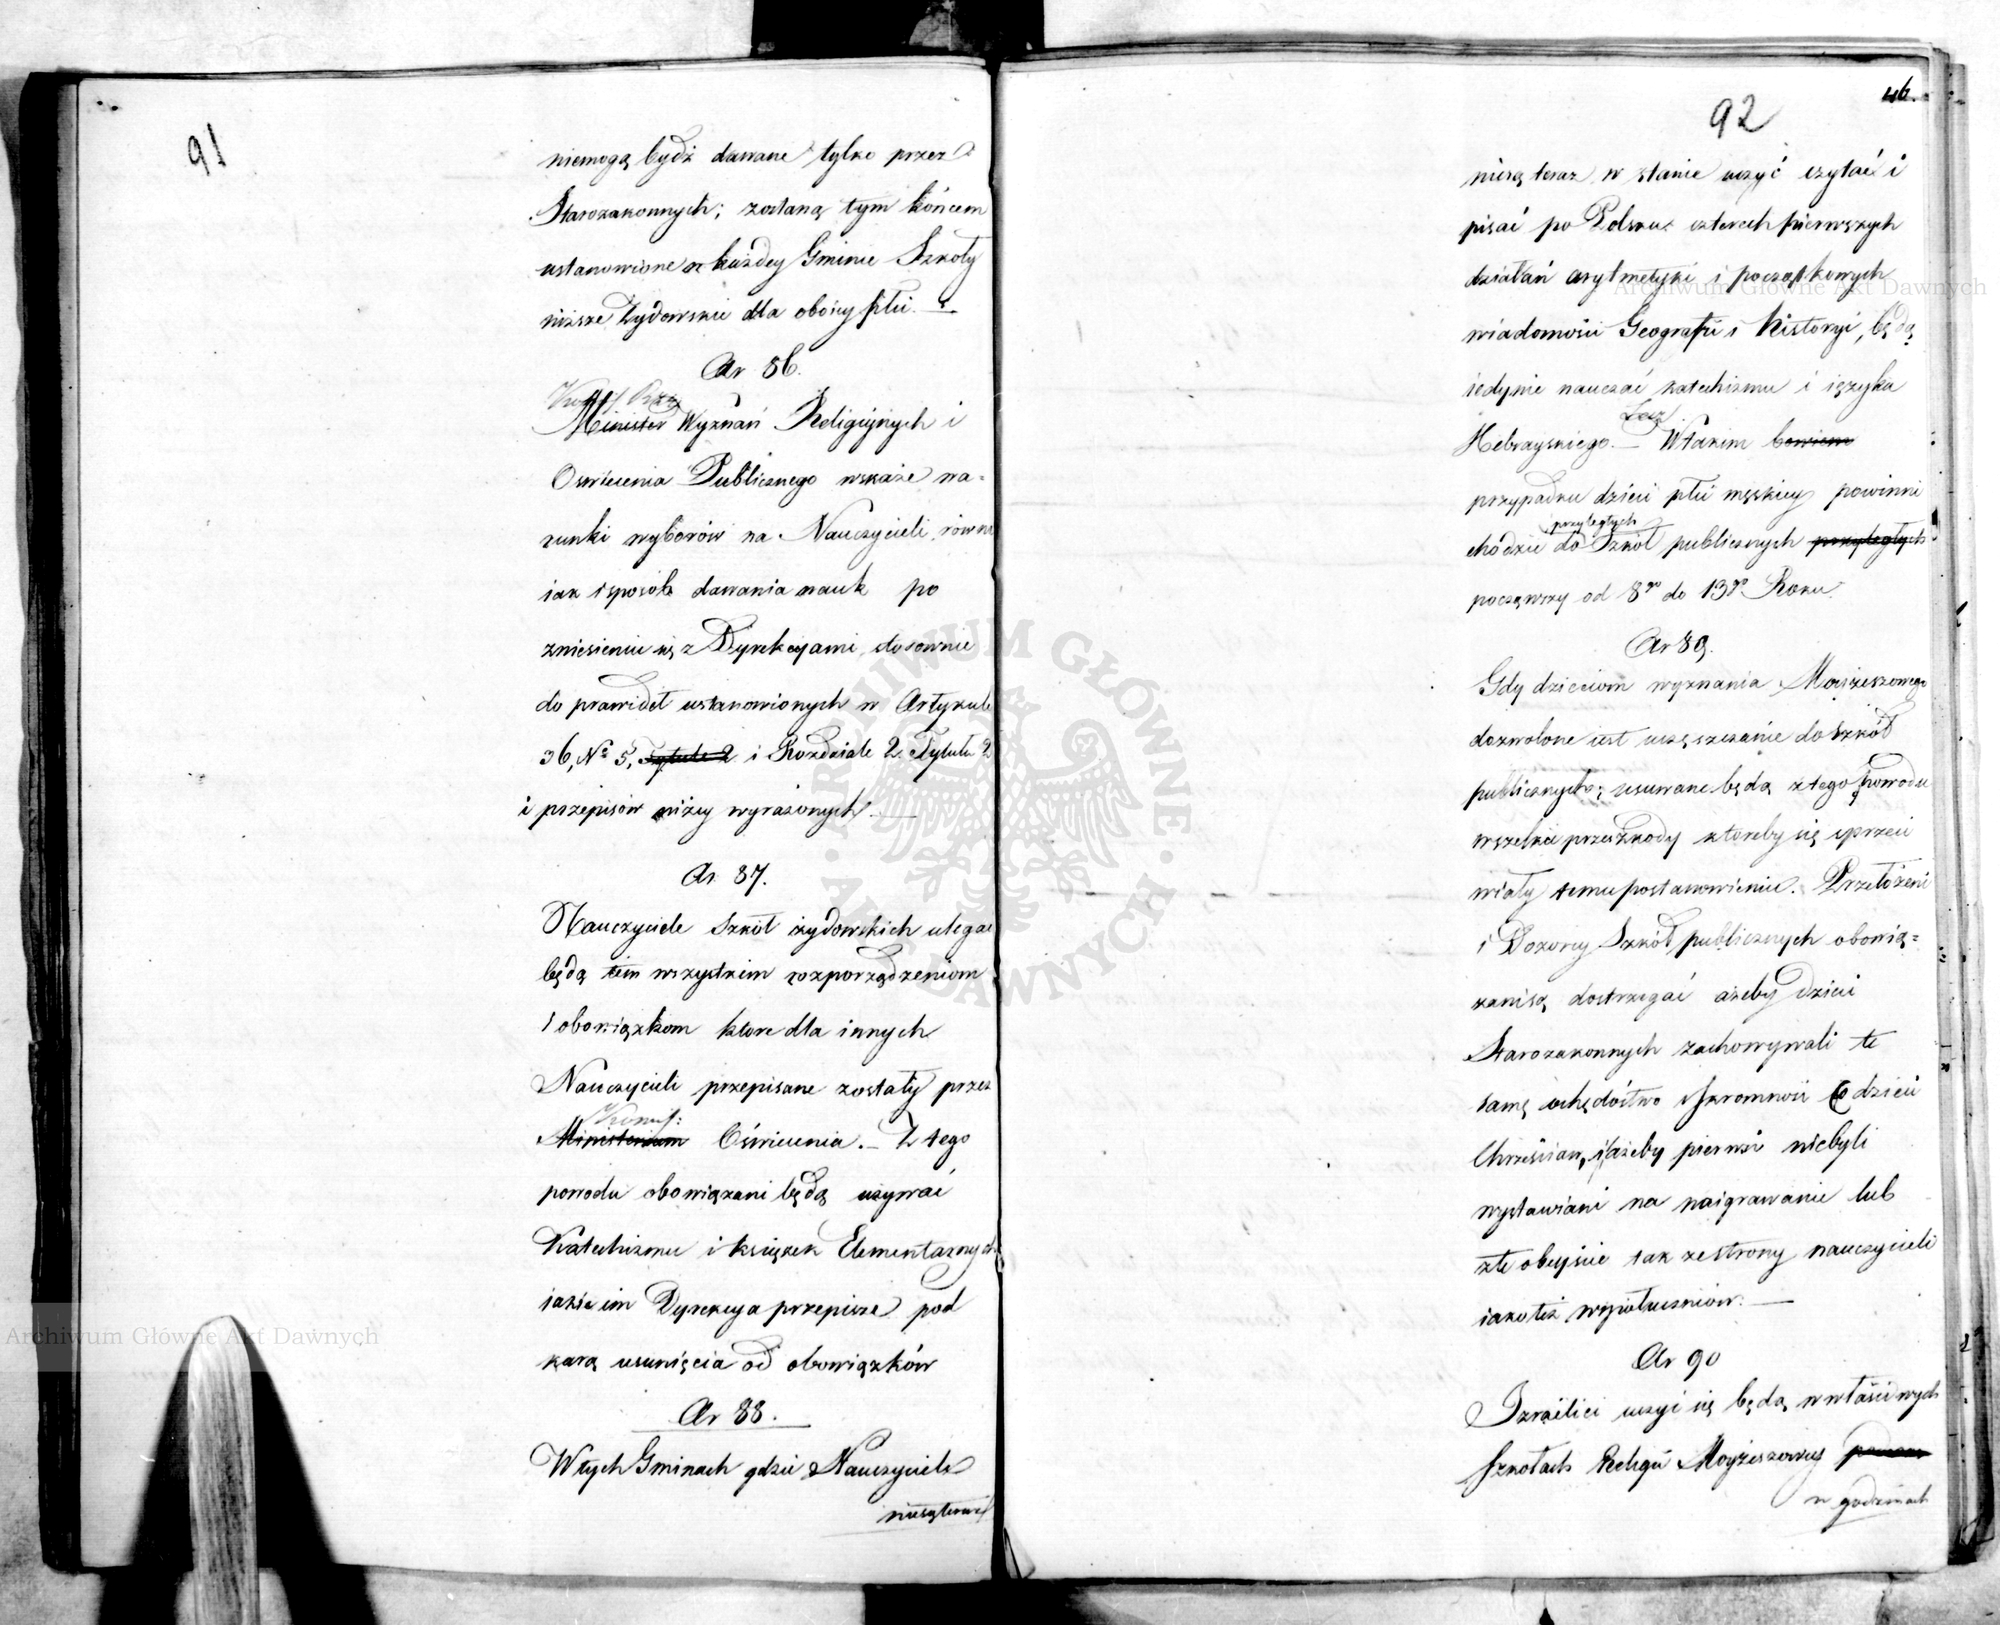 91
niemogą bydź dawane tylko przez
Starozakonnych; zostaną tym końcem
ustanowione w każdey Gminie Szkoły
niższe Żydowskie dla oboiey płci. —
Ar 86.
Minister Wyznań Religiynych i
Oswiecenia Publicznego wskaże wa-
runki wyborów na Nauczycieli, równ
iak i sposób dawania nauk po
zniesieniu się z Dyrekcyami, stosownie
do prawideł ustanowionych w Artykule
36, No 5, Tytule 2 i Rozdziale 2. Tytułu 2
i przepisów niżey wyrażonych. —
Ar 87.
Nauczyciele Szkół żydowskich ulegać
będą tem wszystkim rozporządzeniom
i obowiązkom które dla innych
Nauczycieli przepisane zostały przez
Kommis:
Ministerium Oświecenia. — Z tego
powodu obowiązani będą używać
Katechizmu i książek Elementarnych
iakie im Dyrekcya przepisze pod
karą usunięcia od obowiązków
Ar 88.
W tych Gminach gdzie Nauczyciele
niesąteraz
46.
92
niesą teraz w stanie uczyć czytać i
pisać po Polsku czterech pierwszych
działań arytmetyki i początkowych
wiadomości Geografii i historyi, będą
iedynie nauczać katechizmu i ięzyka
Lecz
Hebrayskiego. — W takim bowiem
przypadku dzieci płci męskiey powinni
przyległych
chodzić do Szkół publicznych przyległych
począwszy od 8go do 13go Roku.
Ar 89.
Gdy dzieciom wyznania Moyżeszowego
dozwolone iest uczęszczanie do Szkół
publicznych; usuwane będą z tego powodu
wszelkie przeszkody któreby się sprzeci
wiały temu postanowieniu. Przełożeni
i Dozorcy Szkół publicznych obowią=
zani są dostrzegać ażeby dzieci
Starozakonnych zachowywali te
samę ochędóstwo i skromność Co dzieci
Chrześcian, i ażeby pierwsi niebyli
wystawiani na naigrawanie lub
złe obeyście tak ze strony nauczycieli
iakoteż współuczniów. —
Ar 90
Izraëlici uczyć się będą w właściwych
Szkołach Religii Moyżeszowey
w godzinach
Archiwum Główne Akt Dawnych
Archiwum Główne Akt Dawnych
ARCHIWUM GŁÓWNE AKT DAWNYCH